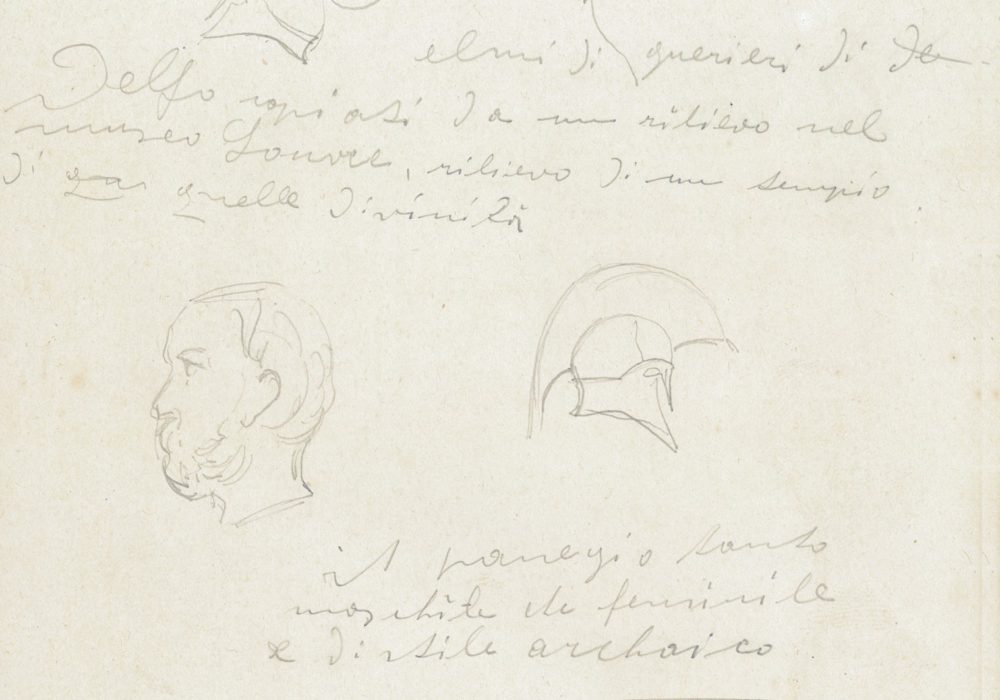 elmi di guerieri di De-
Delfo copiati da un rilievo nel
museo Louvre, rilievo di un tempio
di quelle divinità
il panegio tanto
maschile che feminile
e di stile archaico